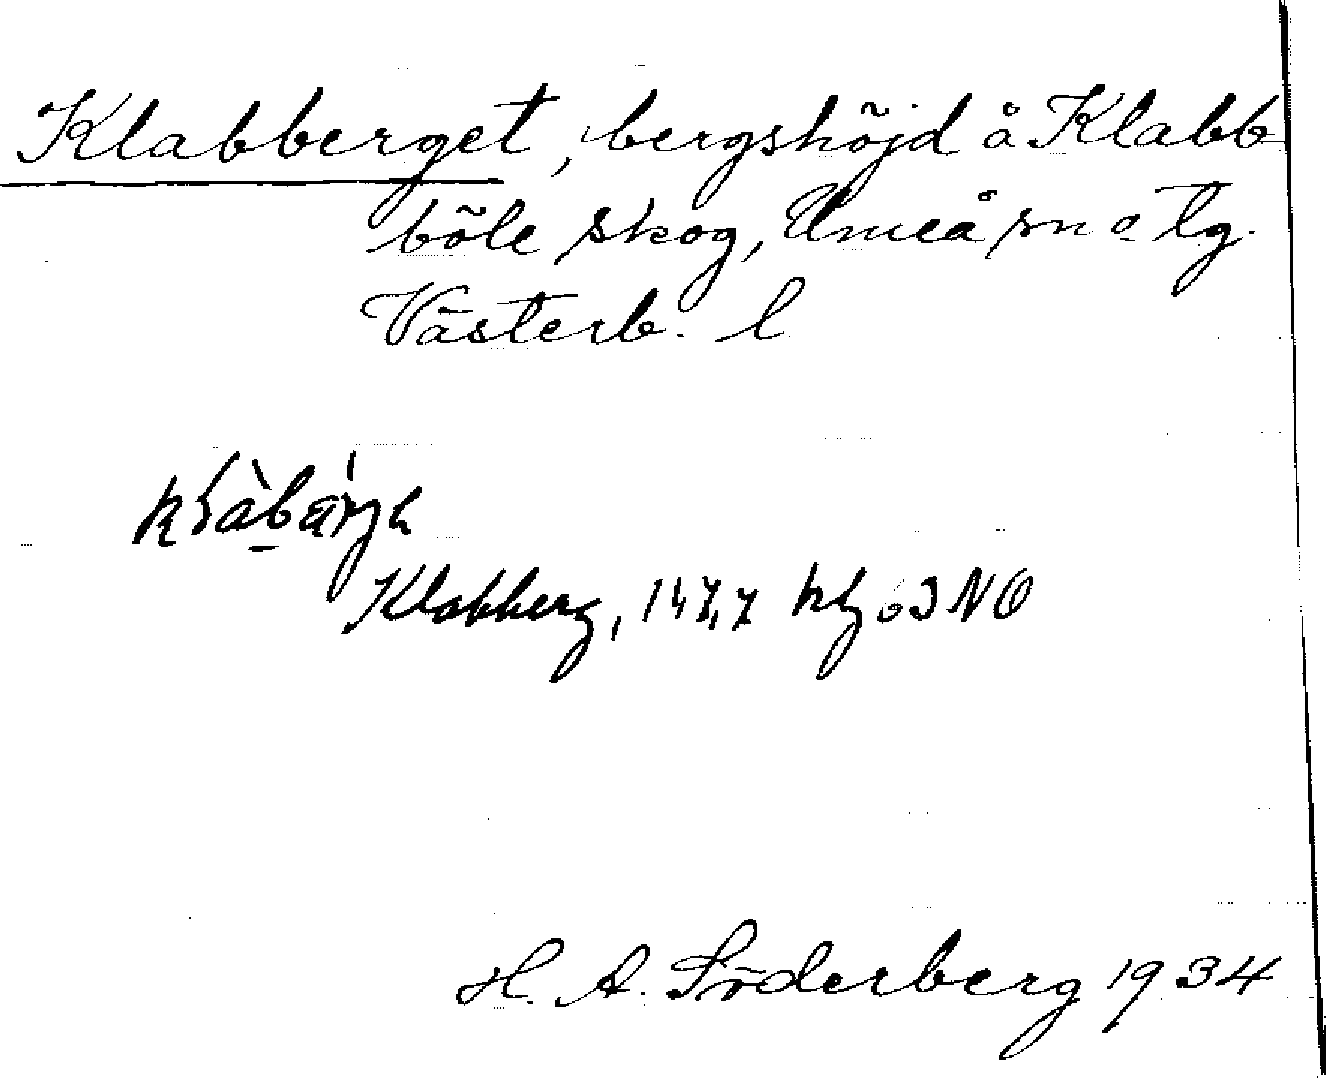 Klabberget, bergshöjd å Klabb
böle skog, Umeå sn o tg.
Västerb. l
Klabberg, 147,7 kbl 63 NO
H. A. Söderberg 1934